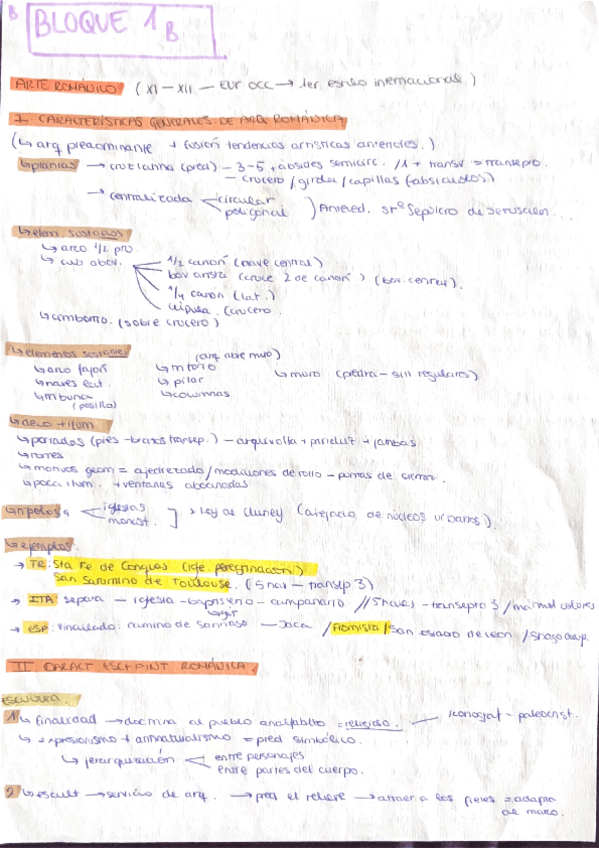 B BLOQUE 1B
ARTE ROMÁNICO (XI - XII - EUR OCC → 1er estilo internacional.)
I. CARACTERÍSTICAS GENERALES DE ARQ ROMÁNICA
(↳ arq predominante + fusión tendencias artísticas anteriores.)
↳ plantas → cruz latina (pred) - 3-5 + ábsides semicirc. / 1 + transv = transepto.
- crucero / girola / capillas (absidiolos)
→ centralizada circular
poligonal ) Sepulcro de Jerusalén...
↳ elem. sustados
↳ arco 1/2 pto
↳ cub abov. 1/2 cañón (nave central)
bov arista (cruce 2 de cañón) (bov. central).
1/4 cañón (lat.)
cúpula. (crucero
↳ cimborrio. (sobre crucero)
↳ elementos sustantes (arq abre muro)
↳ arco fajón ↳ muro (piedra - sill regulares)
↳ naves lat. ↳ pilar
↳ tribuna ↳ columnas
(pasillo)
↳ deco + ilum.
↳ portadas (pies - brazos transep.) - arquivolta + parteluz + jambas
↳ torres
↳ motivos geom = ajedrezado / modillones de rollo -
↳ poca ilum. + ventanas abocinadas
↳ tipolog iglesias
monast. ] > ley de cluney (alejado de núcleos urbanos).
↳ ejemplos.
→ FR: Sta Fe de Conques (igle. peregrinación!)
San Saturnino de Toulouse. (5 nav - transep 3)
→ ITA: separa - iglesia - baptisterio - campanario // 5 naves - transepto 3 / mármol colores
→ ESP: vinculado: camino de Santiago - Jaca / Fromista / San Isidoro de León /
II CARACT ESC + PINT ROMÁNICA.
ESCULTURA.
1 ↳ finalidad → doctrina al pueblo analfabeto = religioso. - iconograf - paleocrist.
↳ expresionismo + antinaturalismo = pred simbólico.
↳ jerarquización entre personajes
entre partes del cuerpo.
2 ↳ escult → servicio de arq. → pred el relieve → atraer a los fieles = adapta
al marco.